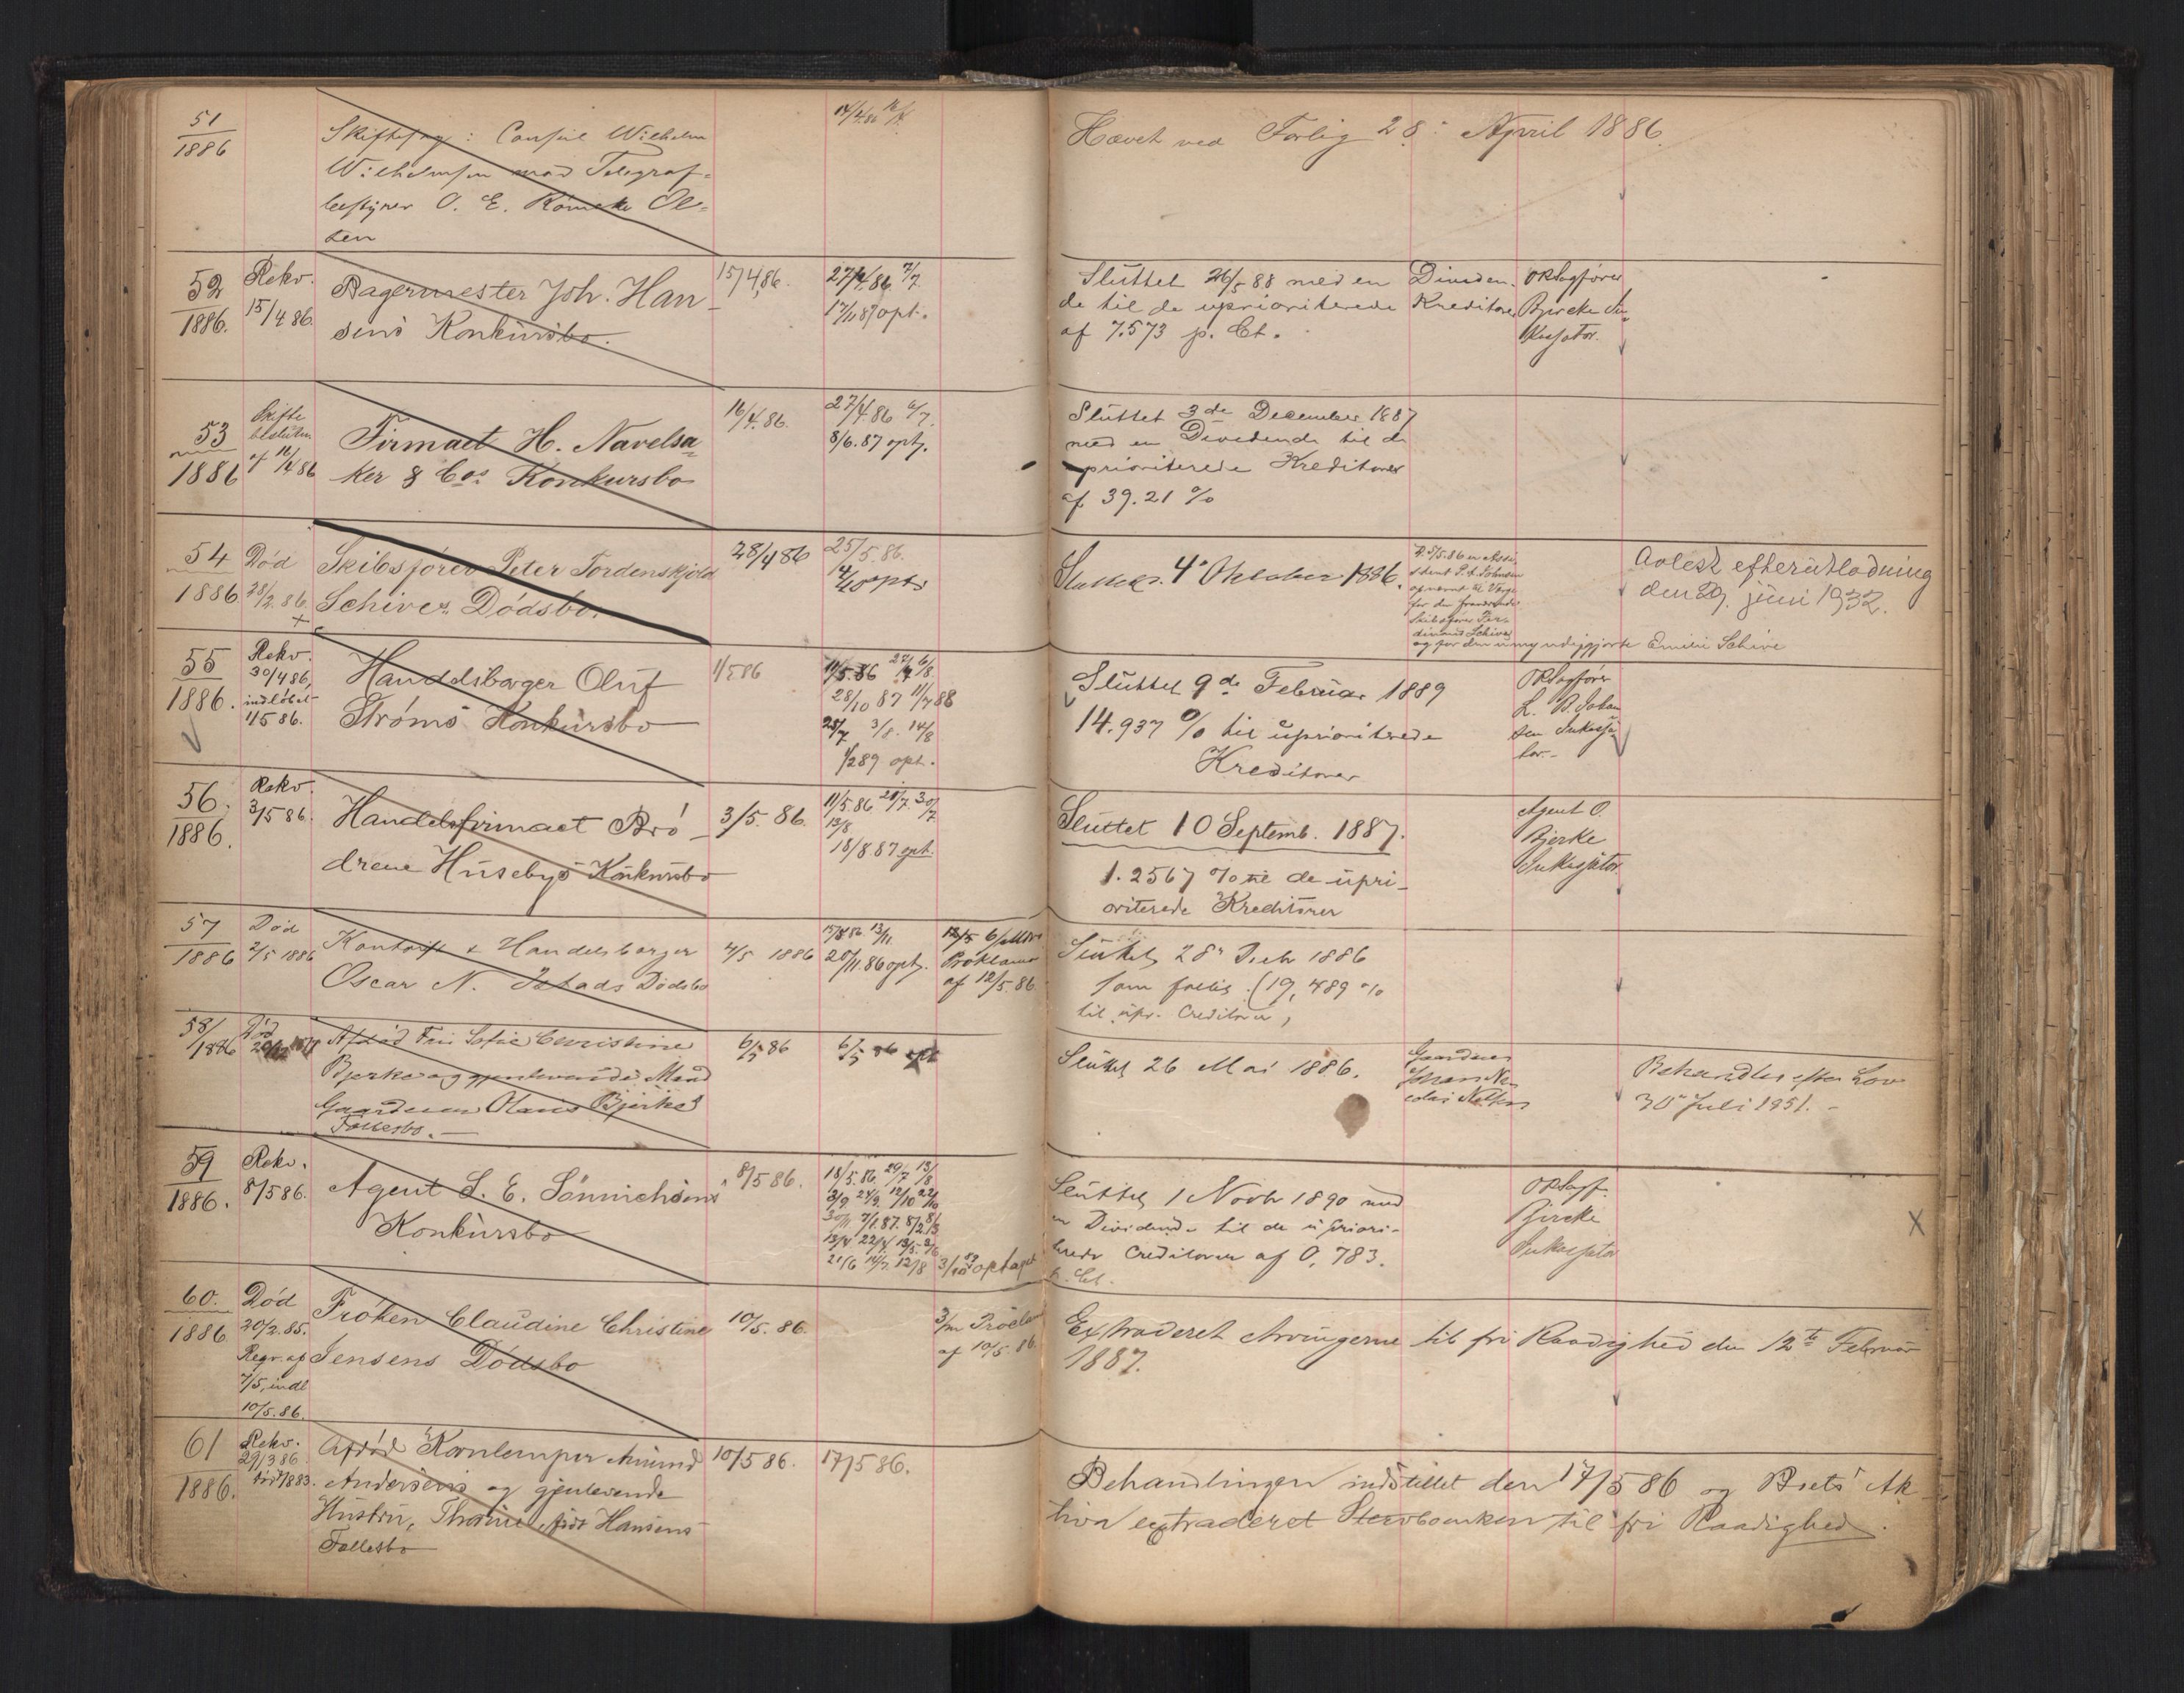 51
1886
Skiftesag: Consul Wilhelm
Wilhelmsen mod Telegraf-
bestyrer O. E. Römcke Ol-
sen
Hævet ved Forlig 28: April 1886.
52
1886.
Rekv.
15/4 86.
Bagermester Joh. Han-
sens Konkursbo.
15/4 86.
27/4 86. 7/7.
17/11 87 opt.
Sluttet 26/5 88 med en Dividen-
de til de uprioriterede Kreditorer
af 7.573 p. Ct.
ORSagfører
Bjercke In-
kassator.
53
1886
Skifte
beslutn.
af 16/4 86
Firmaet H. Navelsa-
ker & Cos. Konkursbo
16/4. 86.
27/4. 86 6/7.
8/6. 87 opt.
Sluttet 3de December 1887
med en Dividende til de
uprioriterede Kreditorer
af 39.21 %
54
1886
Død
28/2. 86.
Skibsfører Peter Tordenskjold
Schives Dødsbo.
28/4 86
25/5. 86.
4/10 opt.
Sluttet 4. Oktober 1886.
for den fraværende
Skibsfører Fer-
dinand Schive
og for den umyndiggjorte Emilie Schive
Avlest efterutlodning
den 29. juni 1932.
55
1886.
Rekv.
30/4 86,
indløbet
1/5 86.
Handelsborger Oluf
Strøms Konkursbo
1/5 86
11/5. 86
28/10 87 11/7 88
3/8. 14/8
1/2 89 opt.
Sluttet 9de Februar 1889
14.937 % til uprioriterede
Kreditorer
ORSagfører
L. B. Johan
sen Inkassa-
tor.
56.
1886.
Rekv.
3/5 86.
Handelsfirmaet Brø-
drene Husebys Konkursbo
3/5. 86.
11/5. 86 21/7. 30/7
13/8
18/8 87 opt.
Sluttet 10 Septemb. 1887.
1.2567 % til de upri-
oriterede Kreditorer
Agent O.
Bjerke
Inkassator
57
1886
Død
2/5 1886
Kontorist & Handelsborger
Oscar N. Istads Dødsbo
4/5 1886
13/11.
20/11. 86 opt.
Proklama
af 12/5. 86.
Sluttet 28. Decbr 1886
som fallit. (19,489 %
til upr. Creditorer,
58/
1886
Død
Afdød Fru Sofie Christine
Bjerke og gjenlevende Mand
Gaardmand Olaus Bjerkes
Fællesbo.
6/5 86
6/5 86 opt
Sluttet 26 Mai 1886.
Gaardmand
Johan Ni-
colai Nilsen
Behandles efter Lov
30. Juli 1851.
59
1886.
Rekv.
8/5 86.
Agent S. E. Sønnichsens
Konkursbo
8/5 86.
18/5. 86. 29/7 13/8
3/9. 24/9. 12/10 22/10
13/4 22/4. 13/5. 2/6
21/6 14/7. 12/8
optaget
Sluttet 1 Novbr 1890 med
en Dividende til de upriori-
terede Creditorer af 0,783.
p. Ct.
ORSagf.
Bjercke
Inkassator
X
60.
1886
Død
20/2. 85.
Regv. af
7/5, indl
10/5. 86.
Frøken Claudine Christine
Jensens Dødsbo
10/5. 86.
3/m Proclama
af 10/5. 86.
Extraderet Arvingerne til fri Raadighed den 12te Februar
1887.
61
1886.
Rekv.
29/3 86
død 1883.
Afdød Kornlemper Amund
Andersens og gjenlevende
Hustru, Thorine født Hansens
Fællesbo
10/5 86.
17/5 86.
Behandlingen indstillet den 17/5 86 og Boets Ak-
tiva extraderet Stervboenken til fri Raadighed.